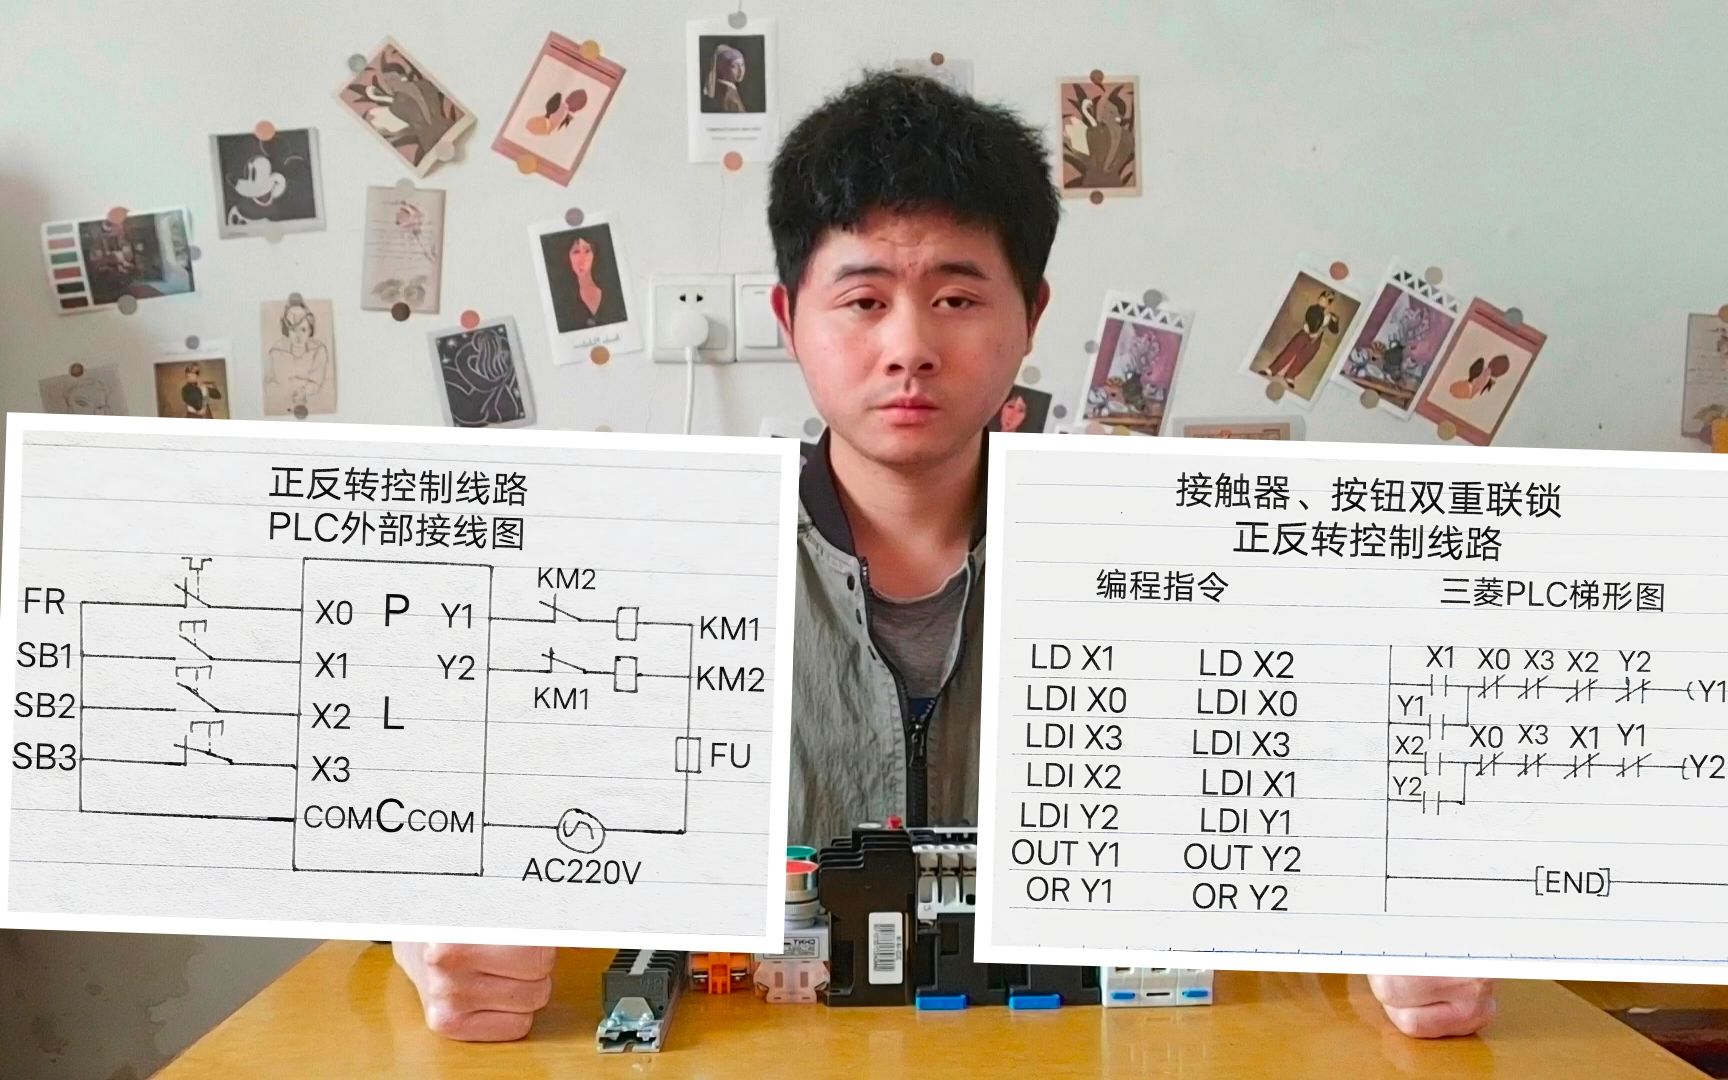 正反转控制线路
PLC外部接线图
FR
SB1
SB2
SB3
X0 P Y1
X1 Y2
X2 L
X3
COM C COM
KM2
KM1
KM1
KM2
FU
AC220V
接触器、按钮双重联锁
正反转控制线路
编程指令
三菱PLC梯形图
LD X1 LD X2
LDI X0 LDI X0
LDI X3 LDI X3
LDI X2 LDI X1
LDI Y2 LDI Y1
OUT Y1 OUT Y2
OR Y1 OR Y2
X1 X0 X3 X2 Y2
(Y1
Y1
X2 X0 X3 X1 Y1
(Y2
Y2
[END]